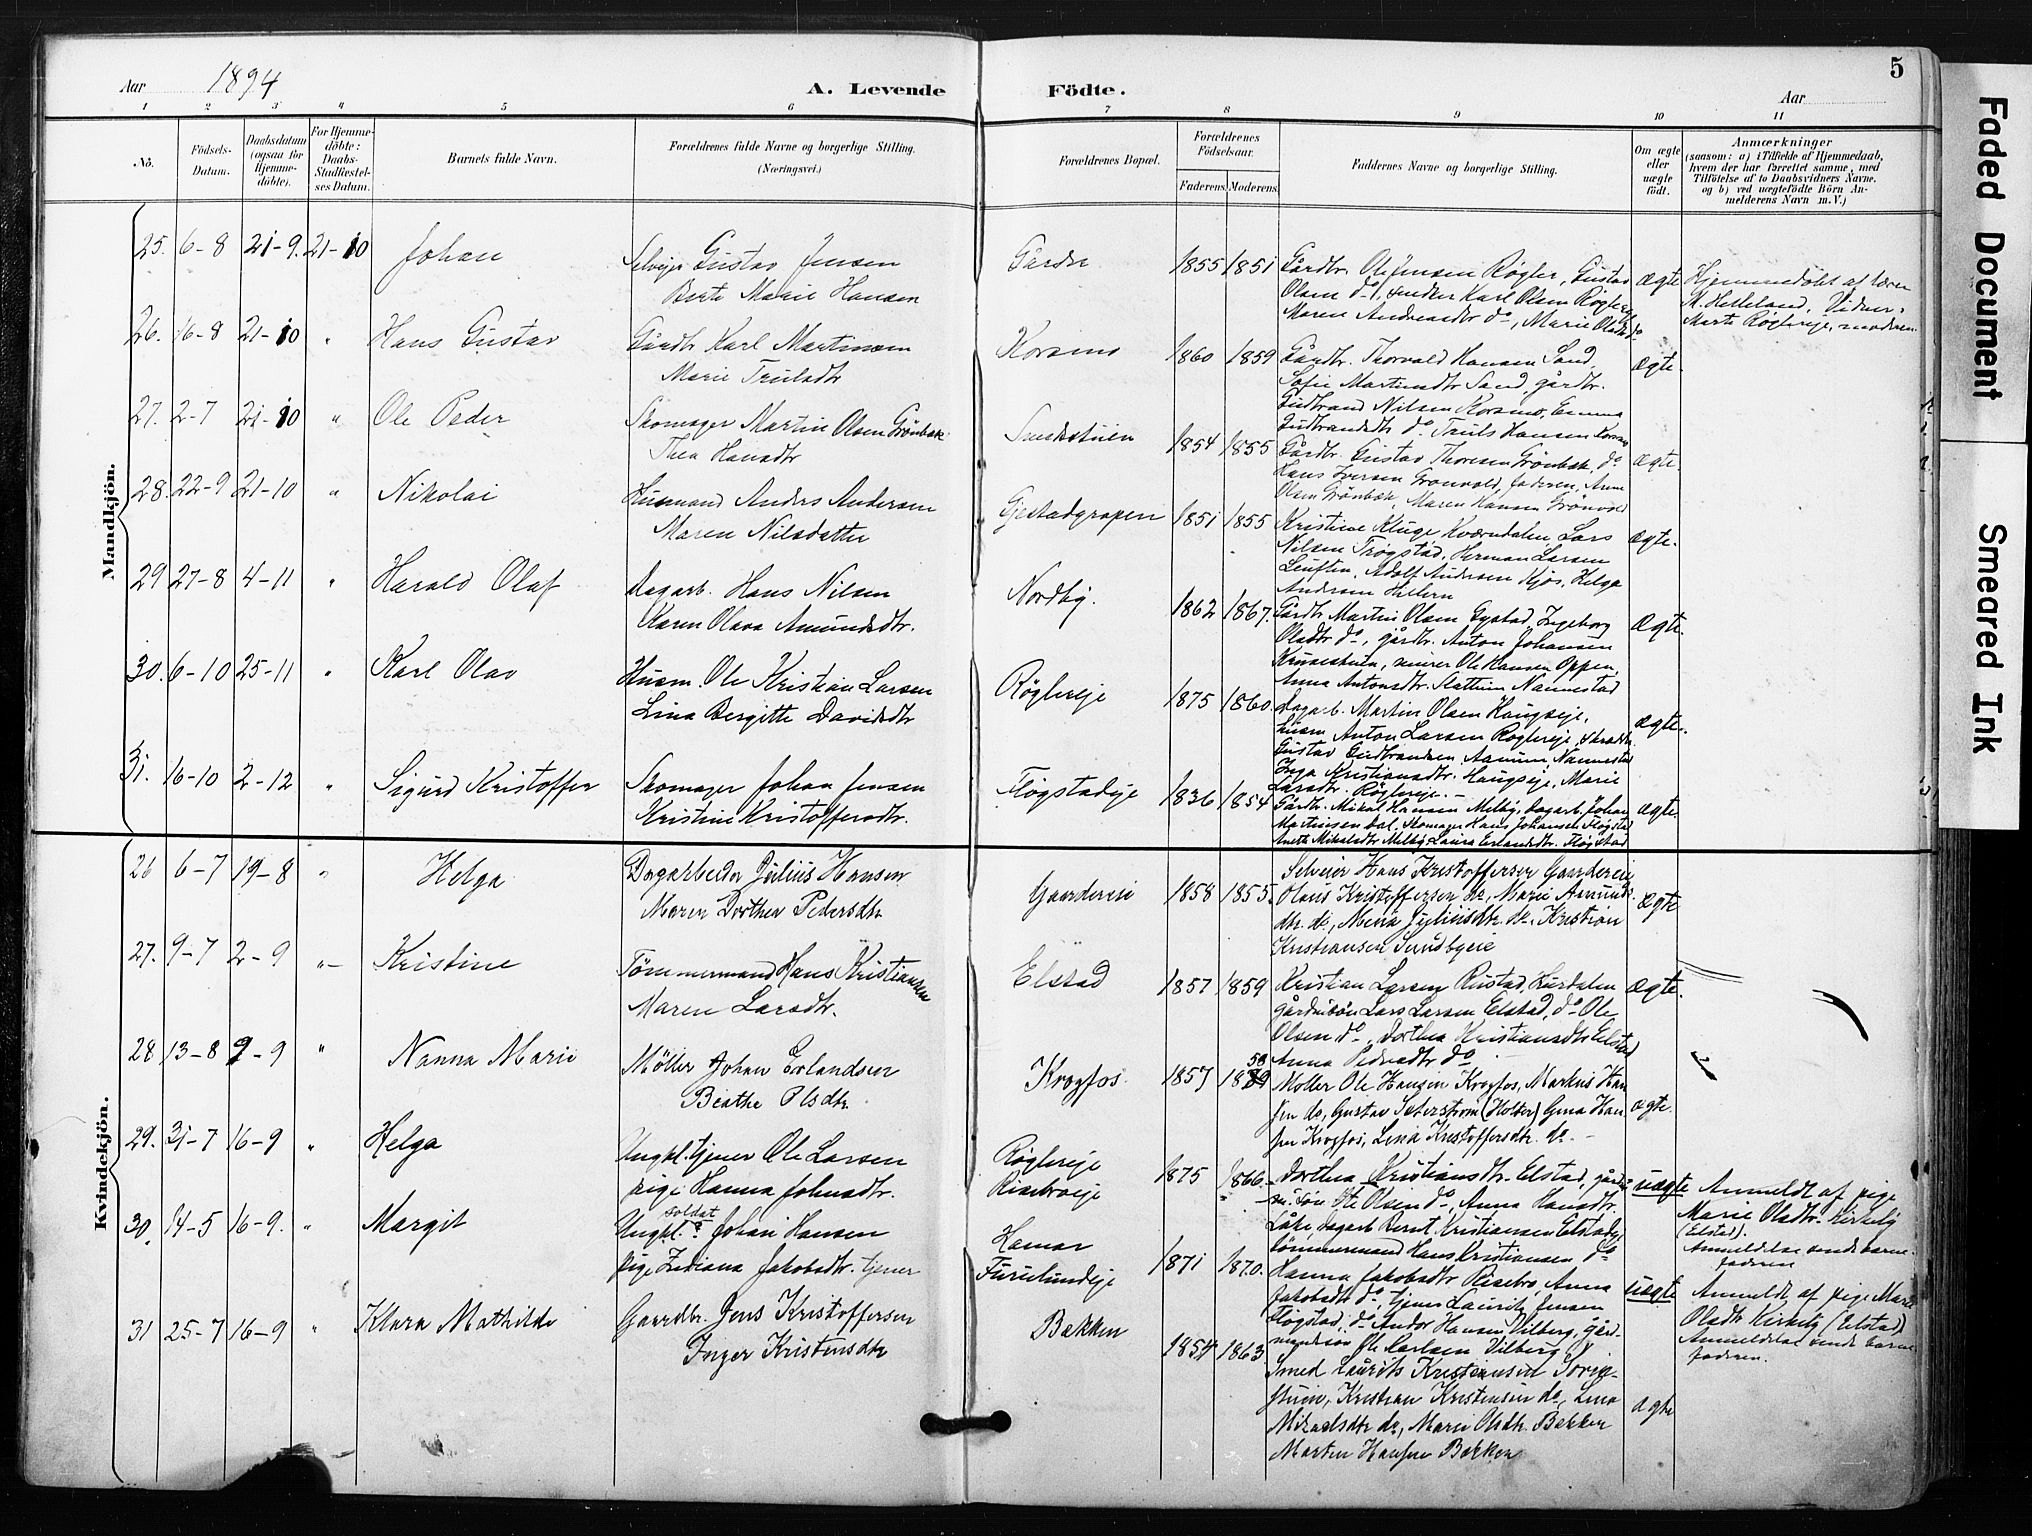 Aar 1894 A. Levende Födte. Aar 5
1 2 3 4 5 6 7 8 9 10 11
No.
Födsels-Datum.
Daabsdatum (ogsaa for Hjemme-döbte).
For Hjemme-döbte: Daabs-Stadfæstel-ses Datum.
Barnets fulde Navn.
Forældrenes fulde Navne og borgerlige Stilling.
(Næringsvei.)
Forældrenes Bopæl.
Forældrenes Födselsaar.
Faderens. Moderens.
Faddernes Navne og borgerlige Stilling.
Om ægte eller uægte födt.
Anmærkninger
(saasom: a) i Tilfælde af Hjemmedaab,
hvem der har forrettet samme, med
Tilföielse af to Daabsvidners Navne.
og b) ved uægtefödte Börn An-
melderens Navn m.V.)
Mandkjön.
25. 6-8 21-9. 21-10 Johan
Selvejer Gustav Jensen
Berte Marie Hansen
1855 1851
Gårdbr. Ole Jensen Røgler, Gustav
Olsen do, snedker Karl Olsen Røglereje
Maren Andreasdtr do, Marie Olsdtr do
Ægte
Hjemmedøbt af lærer
M. Helleland, Vidner:
Marte Røglereje, moderen.
26. 16-8 21-10 " Hans Gustav
Gårdbr Karl Martinsen
Marie Trulsdtr
Korsmo
1860 1859
Gårdbr. Thorvald Hansen Sand,
Sofie Martinsdtr Sand, gårdbr.
Gudbrand Nilsen Korsmo, Emma
Gudbrandsdtr do Truls Hansen Korsmo
Ægte.
27. 2-7 21-10 " Ole Peder
Skomager Martin Olsen Grönbæk
Thea Hansdtr
1854 1855
Gårdbr. Gustav Thoresen Grönbæk, do
Hans Iversen Grönvold, faderen, Anne
Olsen Grönbæk, Maren Hansen Grönvold
Ægte.
28. 22-9 21-10 " Nikolai
Husmand Anders Andersen
Maren Nilsdatter
Gjestadgropen
1851 1855
Kristine Kluge Kværndalen, Lars
Nilsen Trogstad, Herman Larsen
Adolf Andersen Kjos, Helga
Andersen
Ægte.
29 27-8 4-11 " Harald Olaf
Dagarb. Hans Nilsen
Karen Olava Amundsdtr.
Nordby.
1862 1867.
Gårdbr. Martin Olsen Gystad, Ingeborg
Olsdtr do, gårdbr. Anton Johansen
Krusestuen, murer Ole Hansen Oppen,
Anna Antonsdtr. Slattum Nannestad
Ægte.
30. 6-10 25-11 " Karl Olav
Husm. Ole Kristian Larsen
Lina Bergitte Davidsdtr
Røglereje
1875 1860.
Dagarb. Martin Olsen Haugseje,
husm Anton Larsen Røglereje, skrædder
Gustav Gudbrandsen Aamum, Nannestad
Inga Kristiansdtr. Haugseje, Marie
Larsdtr. Røglereje.
ægte.
31. 16-10 2-12 " Sigurd Kristoffer
Skomager Johan Jensen
Kristine Kristoffersdtr.
Fløgstadeje
1836 1854
Gårdbr. Mikal Hansen Melby, Dagarb. Johan
Martinsen Dal, Skomager Hans Johansen Fløgstad
Anette Mikalsdtr Melby, Laura Erlandsdtr. Fløgstad
ægte.
Kvindekjön.
26 6-7 19-8 " Helga
Dagarbeider Julius Hansen
Maren Dorthea Pedersdtr
Gaardereie
1858 1855.
Selveier Hans Kristoffersen Gaardereie
Olaus Kristoffersen do, Marie Amunds-
dtr. do, Mina Juliusdtr. do. Kristian
Kristiansen Sundbyeie
ægte
27. 9-7 2-9 " Kristine
Tömmermand Hans Kristiansen
Maren Larsdtr.
Elstad
1857 1859
Kristian Larsen Rustad, Hurdalen
gårdmbön Lars Larsen Elstad, do Ole
Olsen do, Dorthea Kristiansdtr Elstad
Anna Pedersdtr do
ægte.
28 13-8 9-9 " Nanna Marie
Möller Johan Erlandsen
Beathe Olsdtr.
Krogfos.
1857 1859
Möller Ole Hansen Krogfos, Markus Han-
sen do, Gustav Seterström (Holter) Gina Han-
sen Krogfos, Lina Kristoffersdtr. do. -
ægte.
29. 31-7 16-9 " Helga
Ungkl. tjener Ole Larsen
pige Hanna Johnsdtr.
Røglereje
Risebroeje
1875 1866.
Dorthea Kristiansdtr. Elstad, gård-
m. søn Ole Olsen do, Anna Hansdtr.
Låke, dagarb Bernt Kristiansen Elstadeje
tömmermand Hans Kristiansen do
uægte
Anmeldt af pige
Marie Olsdtr. Kirkeby
(Elstad).
Anmeldelse sendt barne-
faderen
30. 14-5 16-9. " Margit
Ungkl. soldat Johan Hansen
pige Juliana Jakobsdtr. tjener
Hamar
Furulundeje
1871 1870.
Hanna Jakobsdtr Risebro, Anna
Jakobsdtr do, tjener Lauritz Jensen
Fløgstad, do Andor Hansen Vilberg, gård-
mandssøn Ole Carlsen Vilberg
uægte
Anmeldt af pige Marie
Olsdtr Kirkeby (Elstad)
Anmeldelse sendt barne-
faderen.
31 25-7 16-9 " Klara Mathilde
Gaardbr. Jens Kristoffersen
Inger Kristensdtr
Bakken
1854 1863
Smed Laurits Kristiansen
Kristian Kristensen do, Lina
Mikaelsdtr do, Marie Olsdtr. Bakken
Martin Hansen Bakken
ægte
Faded Document
Smeared Ink